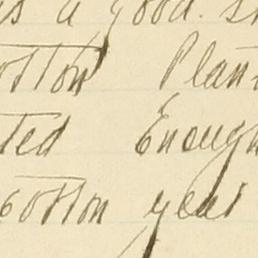 is a good. s
otton Plan
ted Enough
cotton year